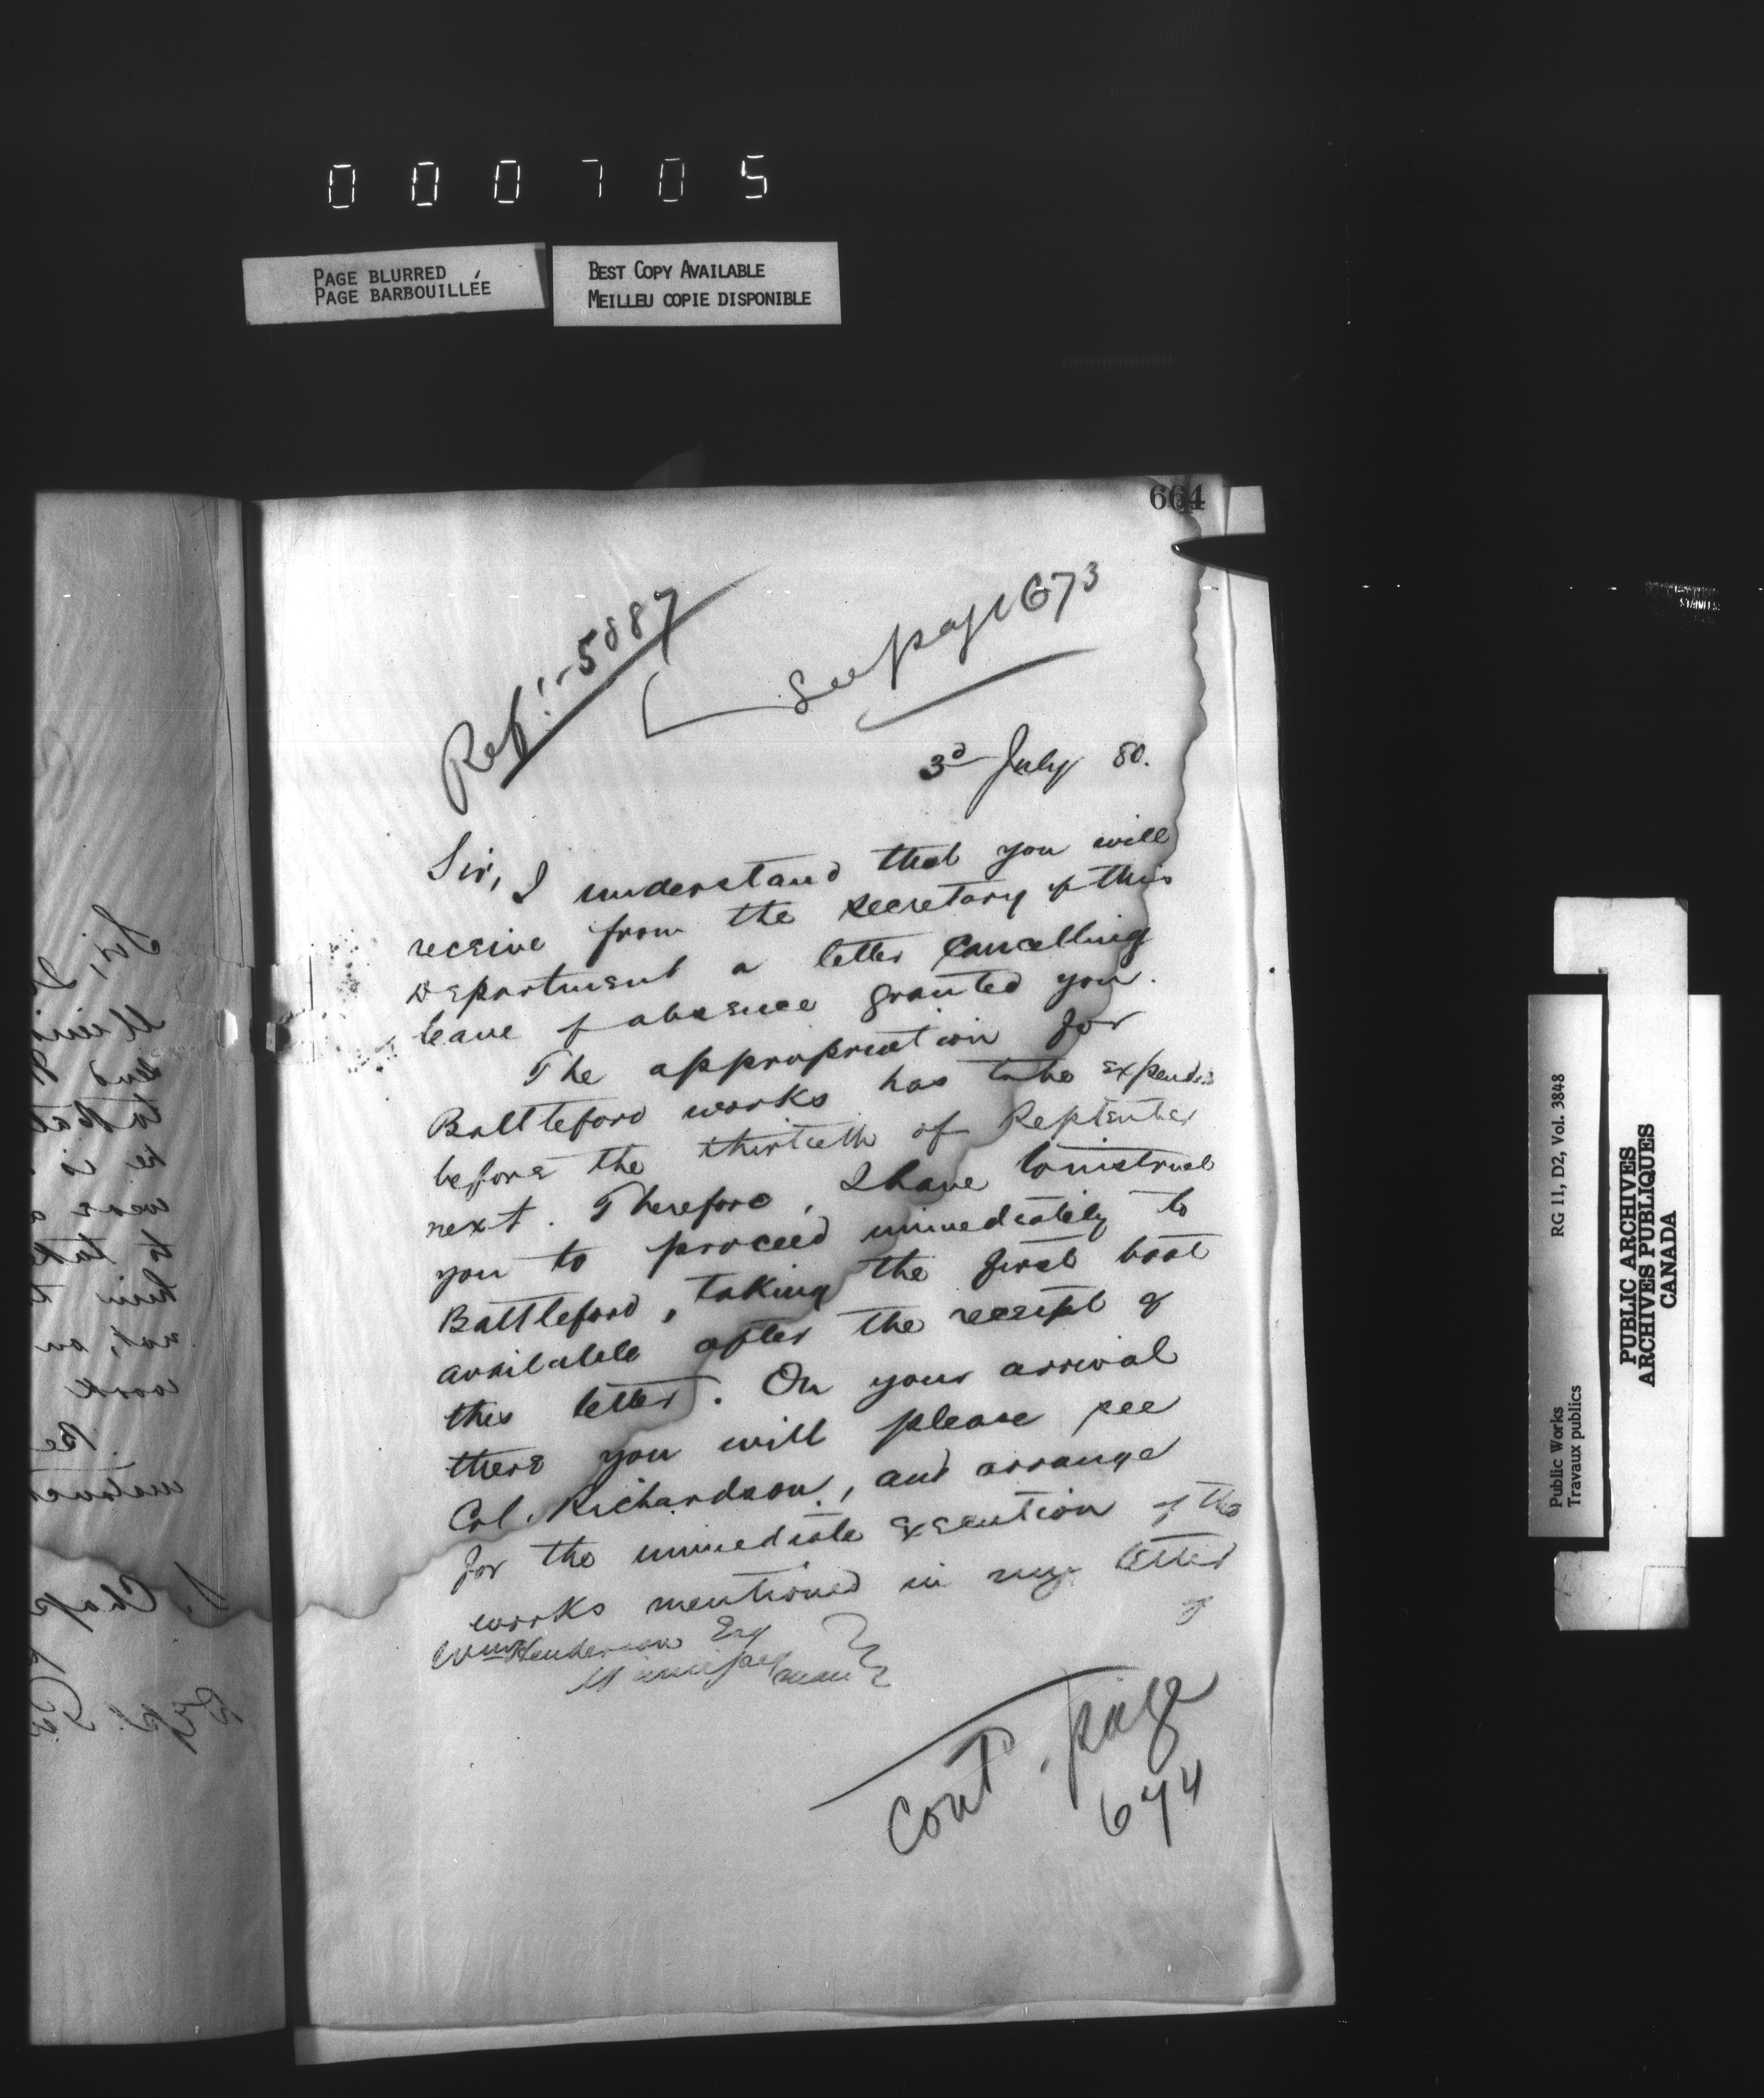 000705
PAGE BLURRED
PAGE BARBOUILLÉE
BEST COPY AVAILABLE
MEILLEU COPIE DISPONIBLE
664
Ref:-5887
See page 673
3d July 80.
Sir, I understand that you will
receive from the secretary of this
Department a letter cancelling
leave of absence granted you.
The appropriation for
Battleford works has to be expended
before the thirtieth of September
next. Therefore, I have to instruct
you to proceed immediately to
Battleford, taking the first boat
available after the receipt of
this letter. On your arrival
there you will please see
Col. Richardson, and arrange
for the immediate execution of the
works mentioned in my letter
of
Wm Henderson Esq
Cont. page
674
RG 11, D2, Vol. 3848
Public Works
Travaux publics
PUBLIC ARCHIVES
ARCHIVES PUBLIQUES
CANADA